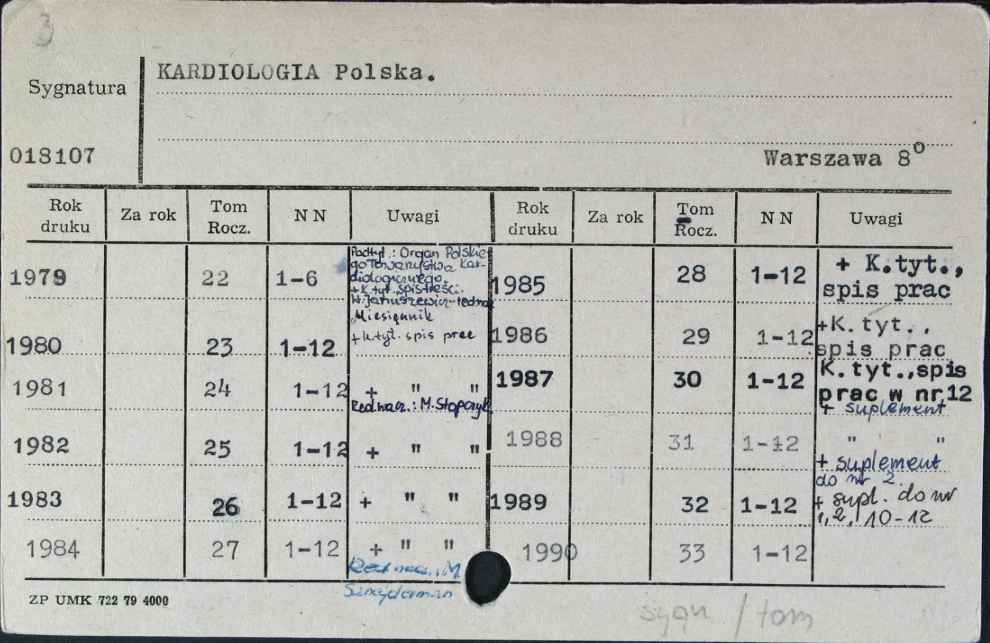 3
KARDIOLOGIA Polska.
Sygnatura
018107
Warszawa 8o
Rok druku Za rok Tom Rocz. NN Uwagi Rok druku Za rok Tom Rocz. NN Uwagi
1979 22 1-6 Podtyt.: Organ Polskie-
go Towarzystwa Kar-
diologicznego.
+ K. tyt. spis treści.
W. Januszewicz-redna
Miesięcznik
1980 23 1-12 + k. tyt. spis prac
1981 24 1-12 + " "
Red. nacz.: M. Stopczyk
1982 25 1-12 + " "
1983 26 1-12 + " "
1984 27 1-12 + " "
Red nacz. M
Sznajderman
1985 28 1-12 + K.tyt.,
spis prac
1986 29 1-12 +K.tyt.,
spis prac
1987 30 1-12 K.tyt.,spis
prac w nr 12
+ suplement
1988 31 1-12 " "
+ suplement
do nr 2.
1989 32 1-12 + supl. do nr
1, 2, 10-12
1990 33 1-12
ZP UMK 722 79 4000
sygn / tom